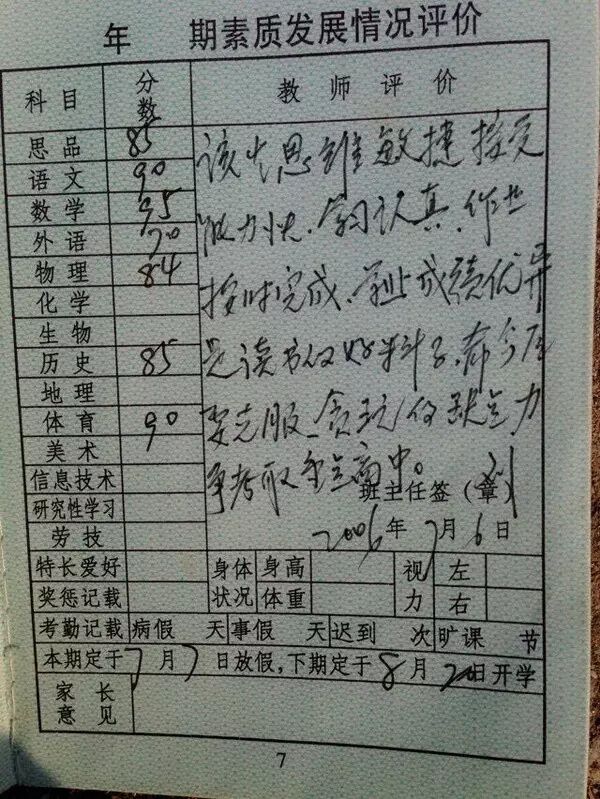 年 期素质发展情况评价
科目 分数 教师评价
思品 85
语文 90
数学 95
外语 70
物理 84
化学
生物
历史 85
地理
体育 90
美术
信息技术
研究性学习
劳技
该生思维敏捷接受
能力快、学习认真、作业
按时完成、学业成绩优异
是读书的好料子、希今后
要克服贪玩的缺点力
争考取重点高中。
班主任签(章) 刘
2006年7月6日
特长爱好 身体状况 身高 体重 视力 左 右
奖惩记载
考勤记载 病假 天 事假 天 迟到 次 旷课 节
本期定于7月7日放假,下期定于8月20日开学
家长意见
7